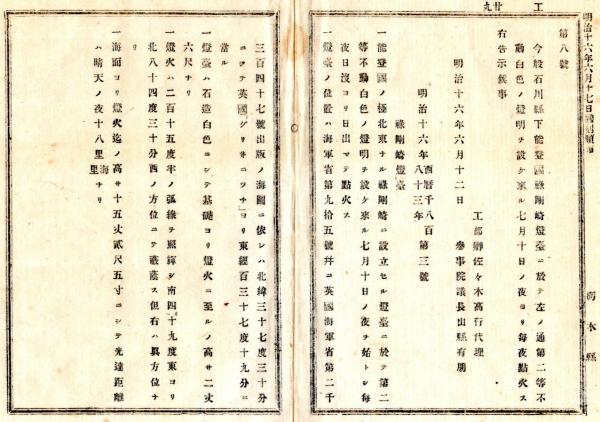 工 廿九
明治十六年六月十七日
第八號
今般石川縣下能登國祿剛崎燈臺ニ於テ左ノ通第二等不
動白色ノ燈明ヲ設ケ來ル七月十日ノ夜ヨリ每夜點火ス
右吿示候事
明治十六年六月十二日
工部卿佐々木高行代理
參事院議長山縣有朋
祿剛崎燈臺
明治十六年 西曆千八百八十三年 第三號
一能登國ノ極北東ナル祿剛崎ニ設立セル燈臺ニ於テ第二
等不動白色ノ燈明ヲ設ケ來ル七月十日ノ夜ヲ始トシ每
夜日沒ヨリ日出マテ點火ス
一燈臺ノ位置ハ海軍省第九拾五號幷ニ英國海軍省第二千
三百四十七號出版ノ海圖ニ依レハ北緯三十七度三十分
ニシテ英國「グリ井ニッチ」ヨリ東經百三十七度十九分ニ
當ル
一燈臺ハ石造白色ニシテ基礎ヨリ燈火ニ至ルノ高サ二丈
六尺ナリ
一燈火ハ二百十五度半ノ弧線ヲ照輝シ南四十九度東ヨリ
北八十四度三十分西ノ方位ニテ蔽蔭ス但右ハ眞方位ナ
リ
一海面ヨリ燈火迄ノ高サ十五丈貳尺五寸ニシテ光達距離
ハ晴天ノ夜十八里海里ナリ
木縣